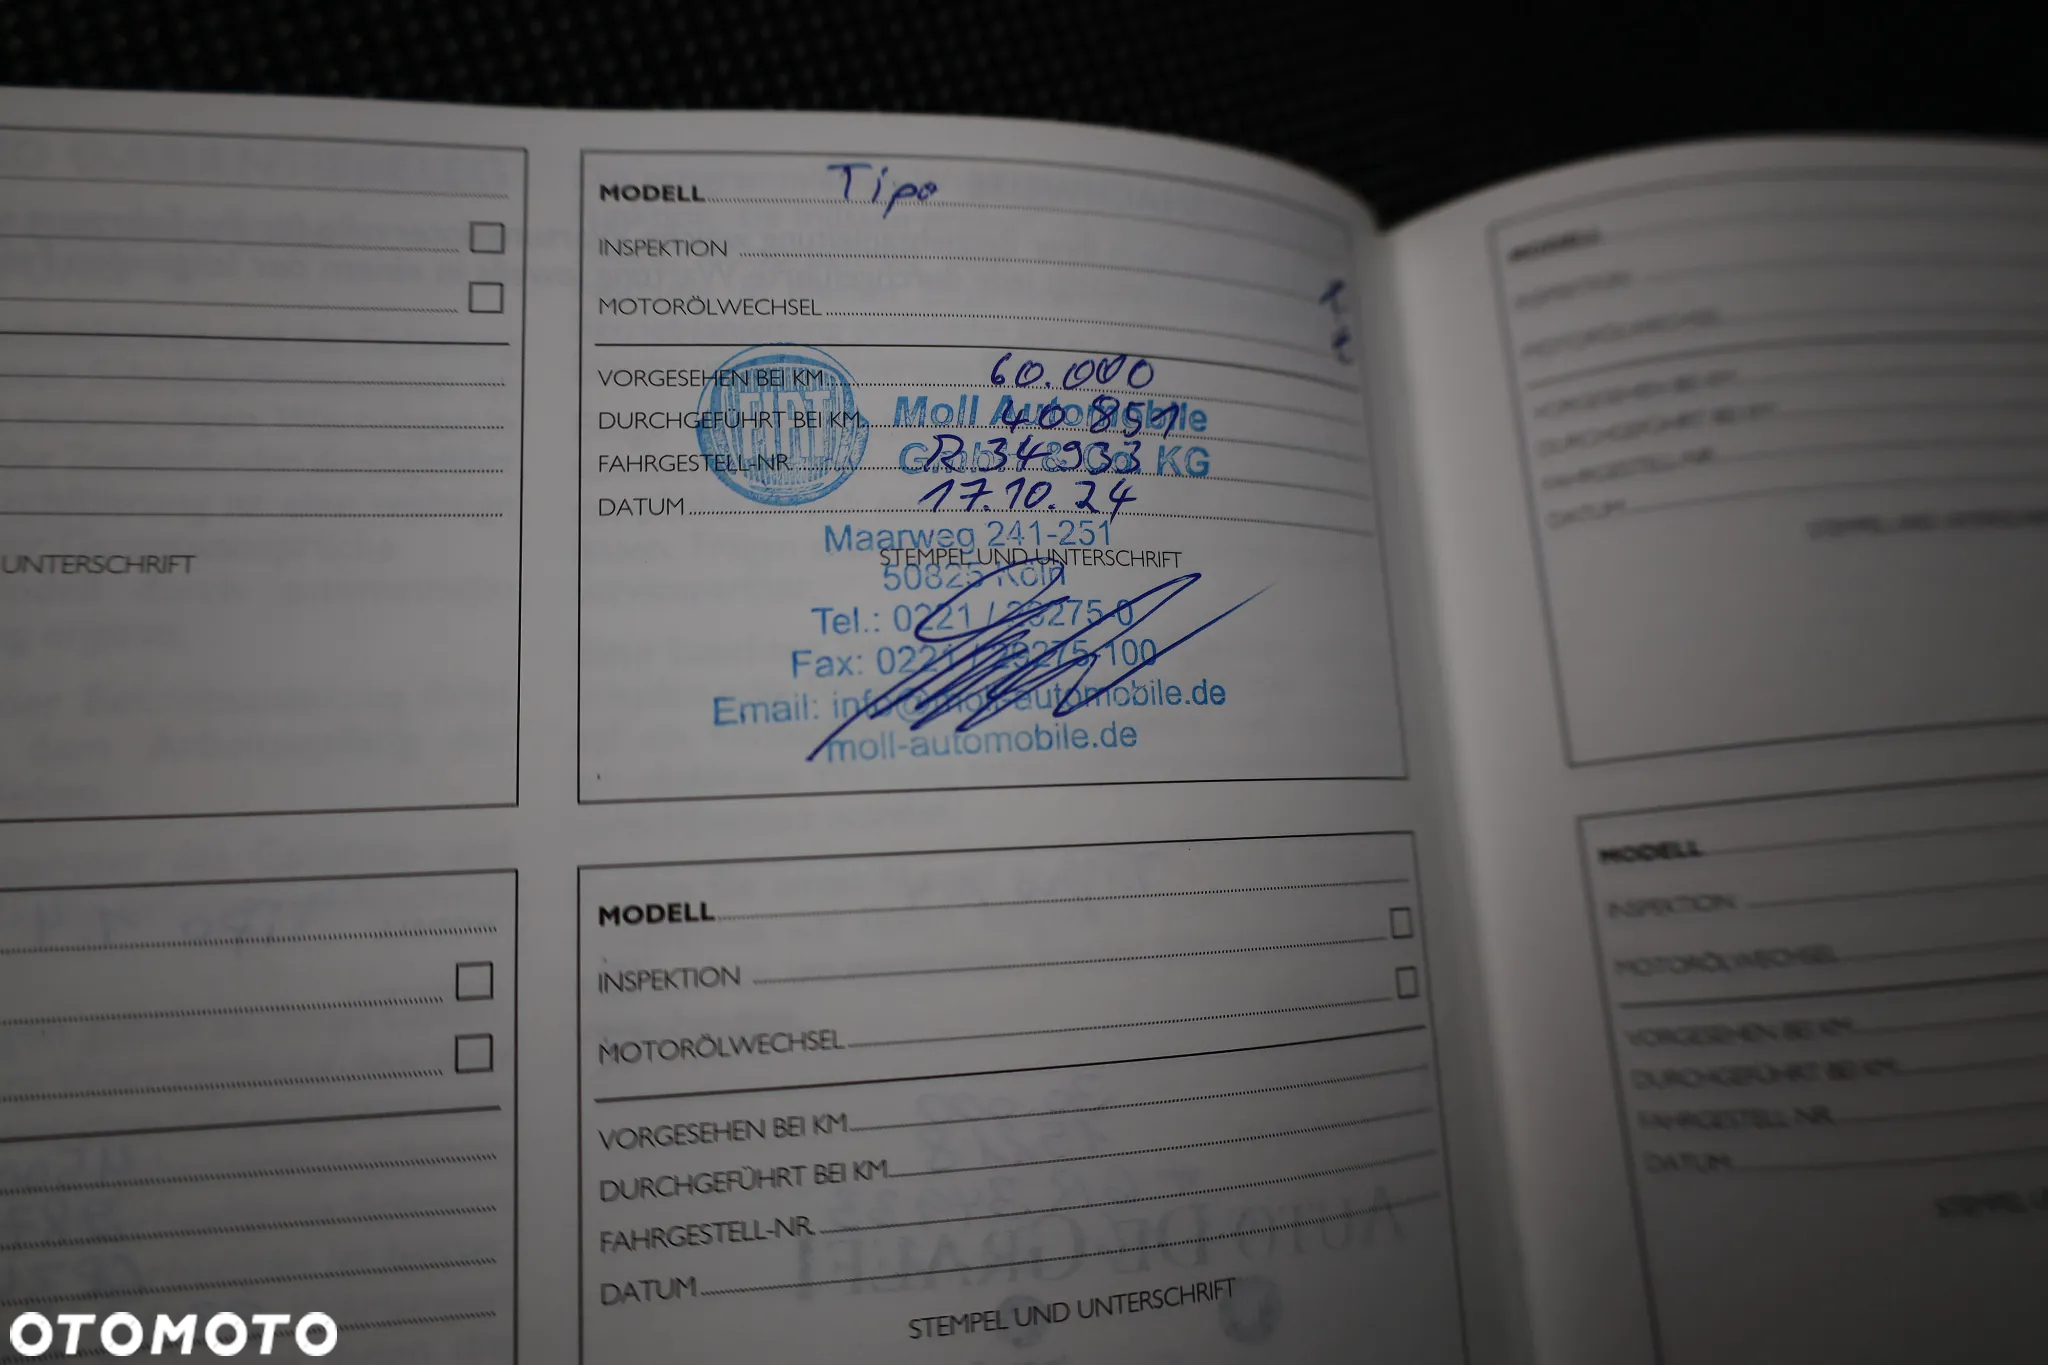 MODELL Tipo
INSPEKTION
MOTORÖLWECHSEL
VORGESEHEN BEI KM 60.000
DURCHGEFÜHRT BEI KM 40 851
FAHRGESTELL-NR. R 34933
DATUM 17.10.24
STEMPEL UND UNTERSCHRIFT
FIAT
Moll Automobile
GmbH & Co. KG
Maarweg 241-251
50825 Köln
Tel.: 0221 / 29275-0
Fax: 0221 / 29275-100
Email: info@moll-automobile.de
moll-automobile.de
UNTERSCHRIFT
MODELL
INSPEKTION
MOTORÖLWECHSEL
VORGESEHEN BEI KM
DURCHGEFÜHRT BEI KM
FAHRGESTELL-NR.
DATUM
STEMPEL UND UNTERSCHRIFT
MODELL
INSPEKTION
MOTORÖLWECHSEL
VORGESEHEN BEI KM
DURCHGEFÜHRT BEI KM
FAHRGESTELL-NR.
DATUM
STEMPEL UND UNTERSCHRIFT
MODELL
INSPEKTION
MOTORÖLWECHSEL
VORGESEHEN BEI KM
DURCHGEFÜHRT BEI KM
FAHRGESTELL-NR.
DATUM
OTOMOTO